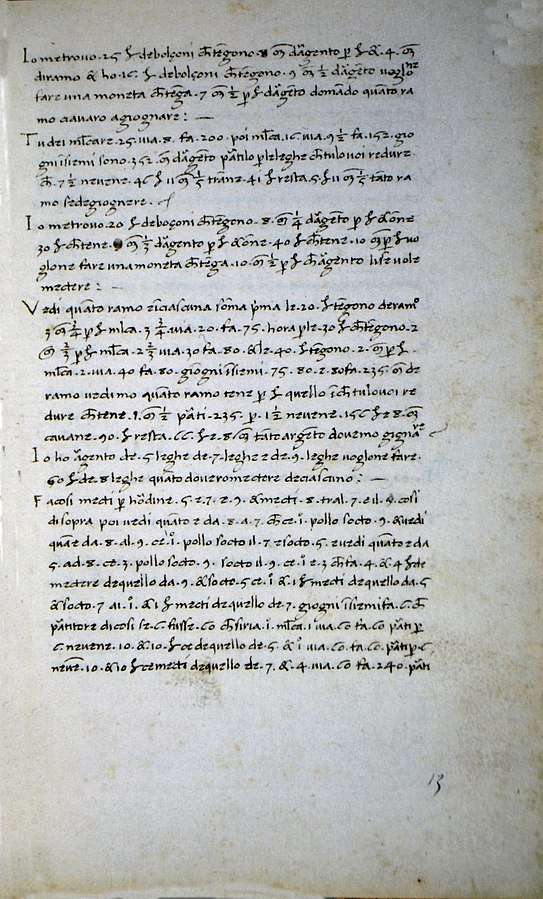 Io metrovo .25. ℔ debolçoni ch tẽgono .8. on̄ dargento p ℔ & .4. on̄
diramo & ho .16. ℔ debolçoni ch tẽgono .9. on̄ ½ dargẽto voglone
fare una moneta ch tẽga .7. on̄ ½ p ℔ dargẽto domãdo quanto ra
mo ci avaro agiognare : —
Tu dei mĩcare .25. via .8. fa .200. poi mĩca .16. via .9½. fa .152. gio
gni issiemi sono .352. on̄ dargẽto partilo p le leghe ch tu lo voi redure
ch̄ .7½. nevene .46 ℔ 11 on̄ ⅕ tranne .41 ℔ resta .5 ℔ 11 on̄ ⅕ tãto ra
mo se de giognere.
Io metrovo .20 ℔ deboçoni ch tẽgono .8. on̄ ¼ dargento p ℔ & one
30 ℔ ch tene .9 on̄ ⅓ dargento p ℔ & one .40 ℔ ch tene .10 on̄ p ℔ vo
glone fare una moneta ch tẽga .10. on̄ ½ p ℔ ch argento li se vole
mectere : —
Vedi quanto ramo e in ciascuna soma prima le .20. ℔ tẽgono de ramo
3 on̄ ¾ p ℔ mĩca .3¾. via .20. fa .75. hora p le .30 ℔ ch tẽgono .2
on̄ ⅔ p ℔ mĩca .2⅔ via .30 fa .80. & le .40. ℔ tẽgono .2. on̄ p ℔.
mĩca .2. via .40 fa .80. giogni issiemi .75. 80. e .80 fa .235. on̄ de
ramo vedi mo quanto ramo tene p ℔ quello ĩ ch tu lo voi re
dure ch tene .1. on̄ ½ parti .235. p .1½ nevene .156 ℔ e 8. on̄
cavane .90. ℔ resta .66. ℔ e .8 on̄ tãto argẽto dovemo giognare
Io ho argento de .5 leghe de .7. leghe e de .9. leghe voglone fare.
60 ℔ de .8 leghe quãto dovero mectere de ciascuno : —
Fa cosi mecti p hordine .5. e .7. e .9. & mecti .8. tra l .7 e il .9. cosi
di sopra poi vedi quanto e da .8. a .7. ch̄ ce .1. pollo socto .9. & vedi
quãt e da .8. al .9. ce .1. pollo socto il .7 e socto .5. e vedi quanto e da
.5. ad .8. ce .3. pollo socto .9. socto il .9. ce .1. e 3. ch fa .4. & 4 ℔ de
mectere de quello da .9. & socto .5 ce .1. & 1 ℔ mecti de quello da .5
& socto .7 ai .1. & 1 ℔ mecti de quello de .7. giogni issiemi fa .6. ch̄
partitore di cosi se .6. fusse .60 ch siria .1. mĩca .1 via .60 fa .60 parti p
6 nevene .10. & 10 ℔ ce de quello de .5. & 1 via .60. fa .60. parti p .6
nevene .10 & 10 ℔ ce mecti de quello de .7. & .4. via .60 fa .240. parti
13